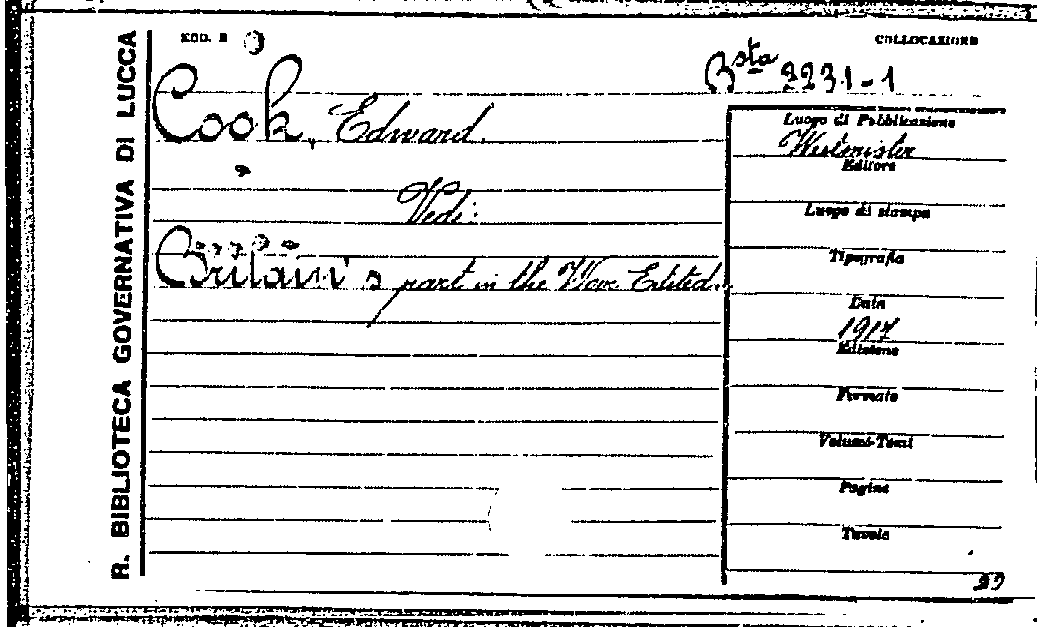 R. BIBLIOTECA GOVERNATIVA DI LUCCA
MOD. B
COLLOCAZIONE
Bsta 2231-1
Cook, Edward.
Vedi:
Britain's part in the War Edited.
Luogo di Pubblicazione
Westminster
Editore
Luogo di stampa
Tipografia
Data
1917
Edizione
Formato
Volumi-Tomi
Pagine
Tavole